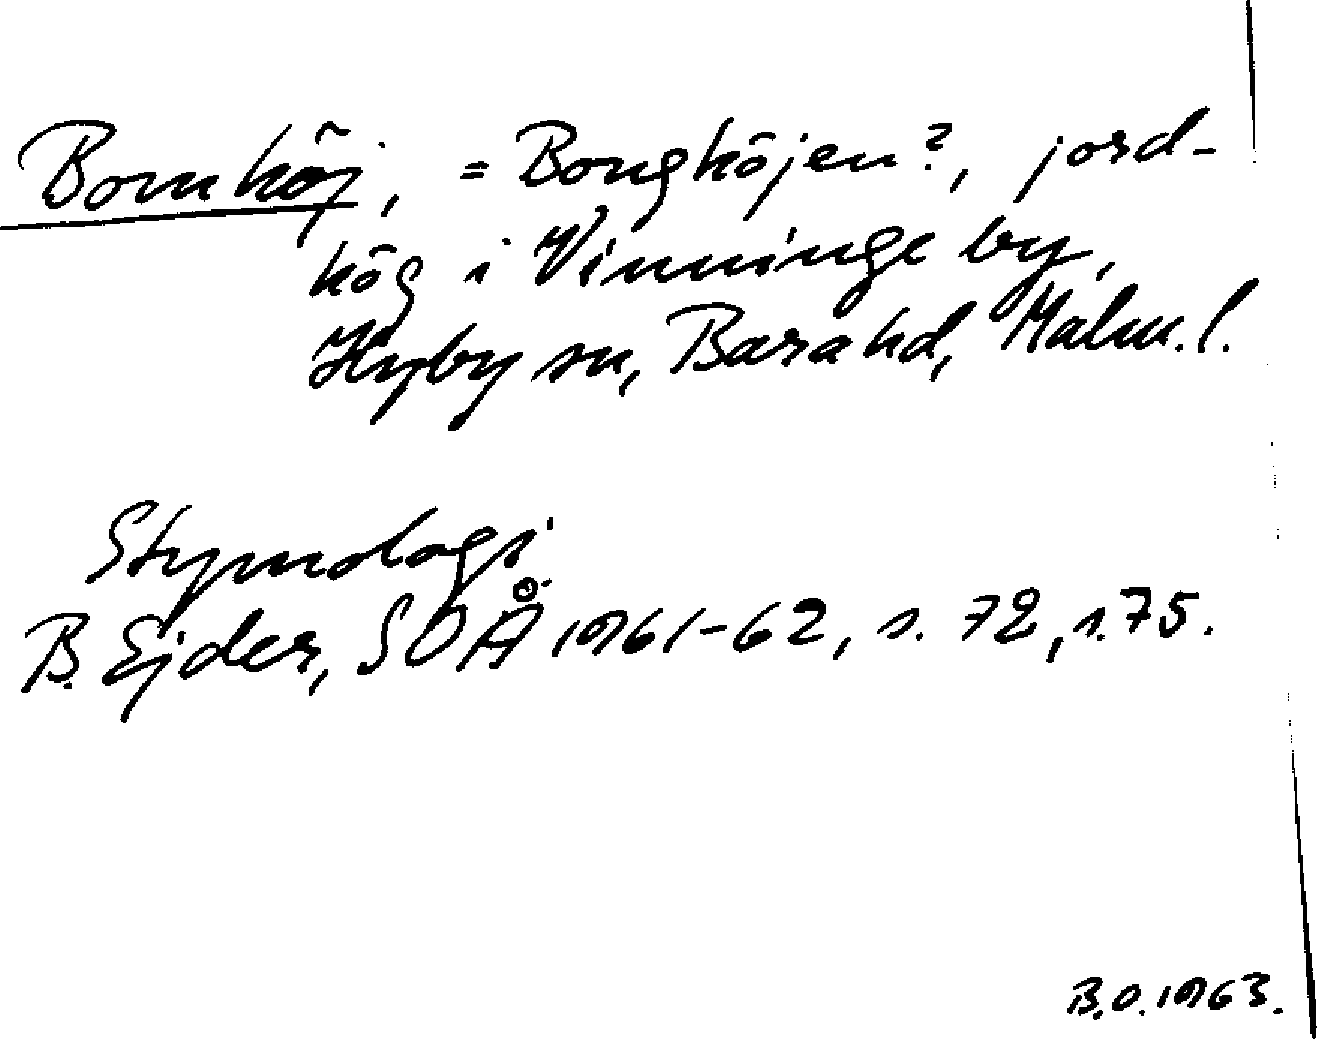 Bomhöj, = Bonghöjen?, jord-
hög i Vinninge by,
Hyby sn, Bara hd, Malm. l.
Etymologi
B. Ejder, SOÅ 1961-62, s. 72, s. 75.
B.O. 1963.